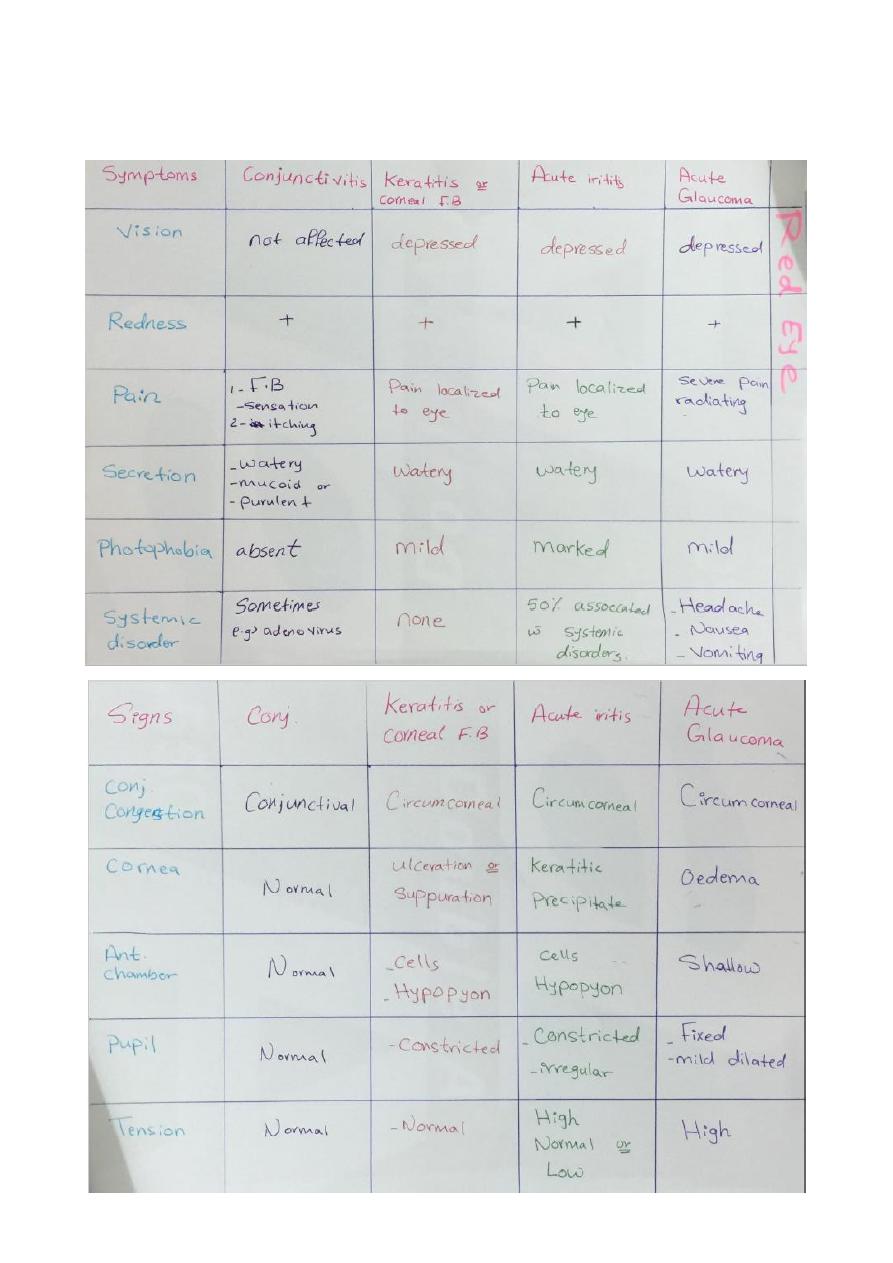 Symptoms Conjunctivitis Keratitis or corneal F.B Acute irititis Acute Glaucoma
Red Eye
Vision not affected depressed depressed depressed
Redness + + + +
Pain 1- F.B -sensation 2- itching Pain localized to eye Pan localized to eye severe pain radiating
Secretion -watery -mucoid or -purulent watery watery watery
Photophobia absent mild marked mild
Systemic disorder Sometimes e.g> adenovirus none 50% assoccated w systemic disorders. -Headache - Nausea - Vomiting
Signs Conj. Keratitis or Corneal F.B Acute iritis Acute Glaucoma
Conj. Congestion Conjunctival Circumcorneal Circumcorneal Circumcorneal
Cornea Normal Ulceration or Suppuration Keratitic Precipitate Oedema
Ant. chamber Normal -Cells -Hypopyon Cells Hypopyon Shallow
Pupil Normal -Constricted -Constricted -irregular -Fixed -mild dilated
Tension Normal -Normal High Normal or Low High